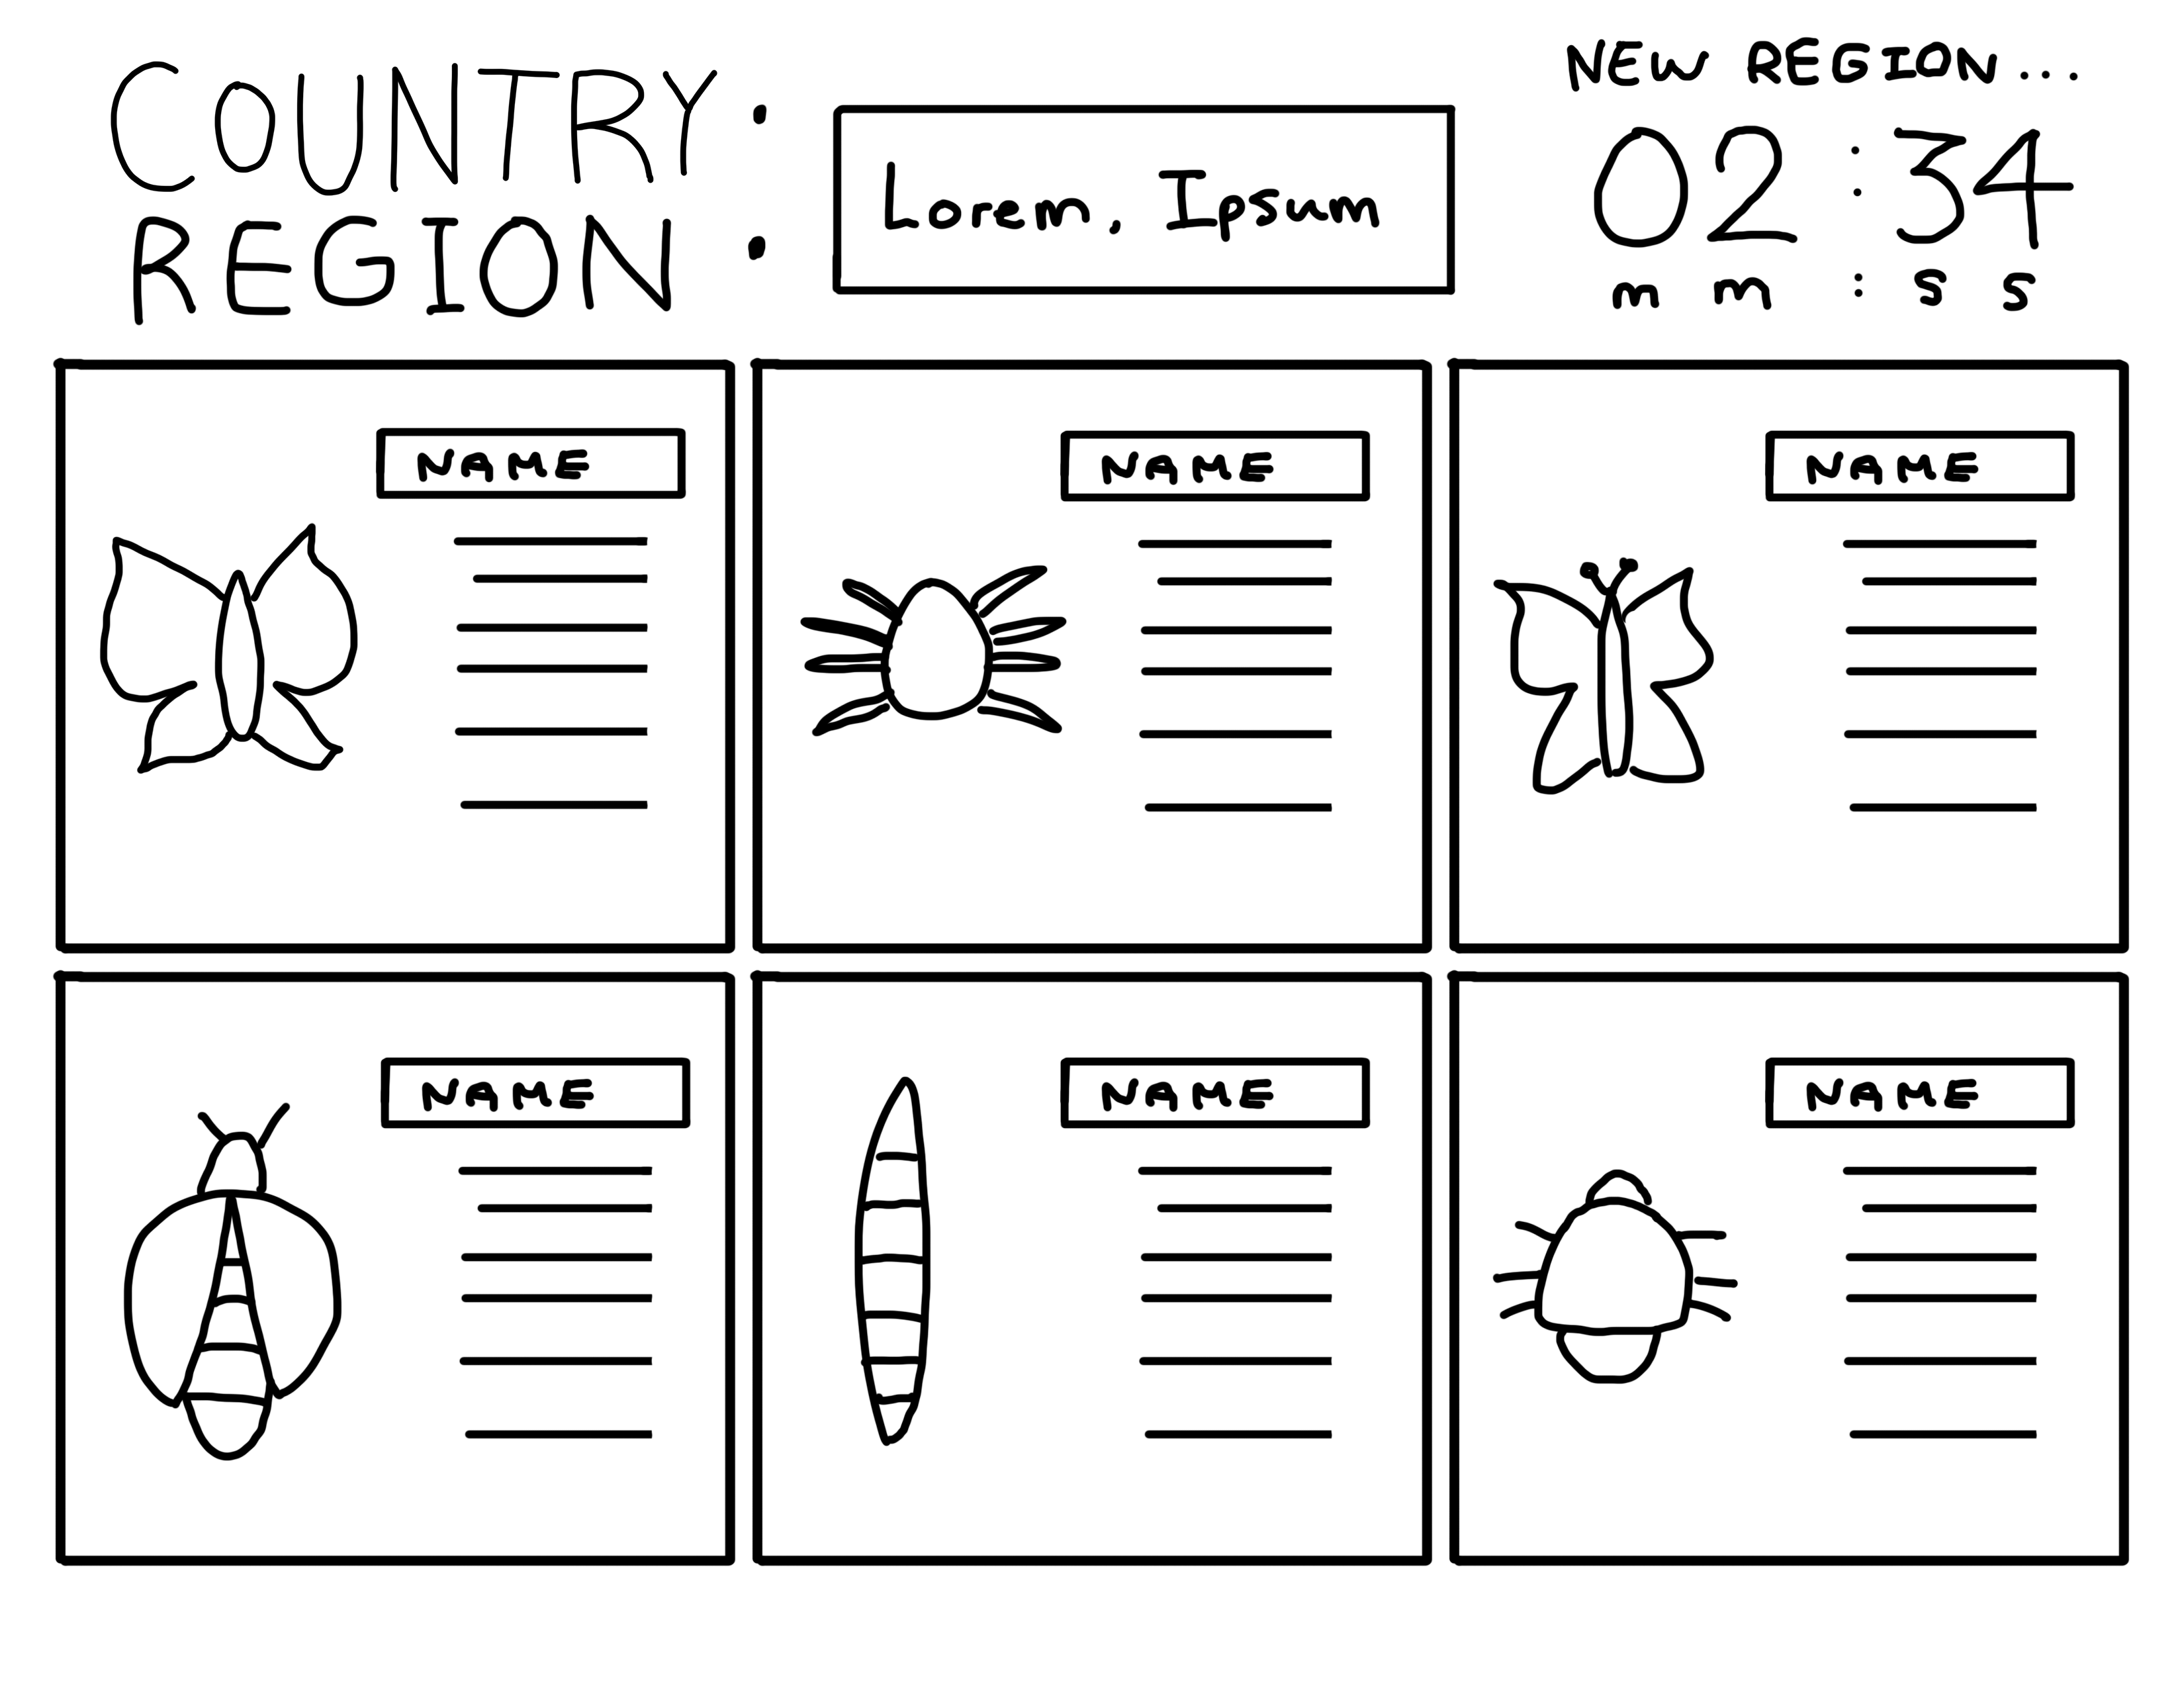 COUNTRY:
REGION:
Lorem, Ipsum
NEW REGION...
02:34
mm:ss
NAME
NAME
NAME
NAME
NAME
NAME